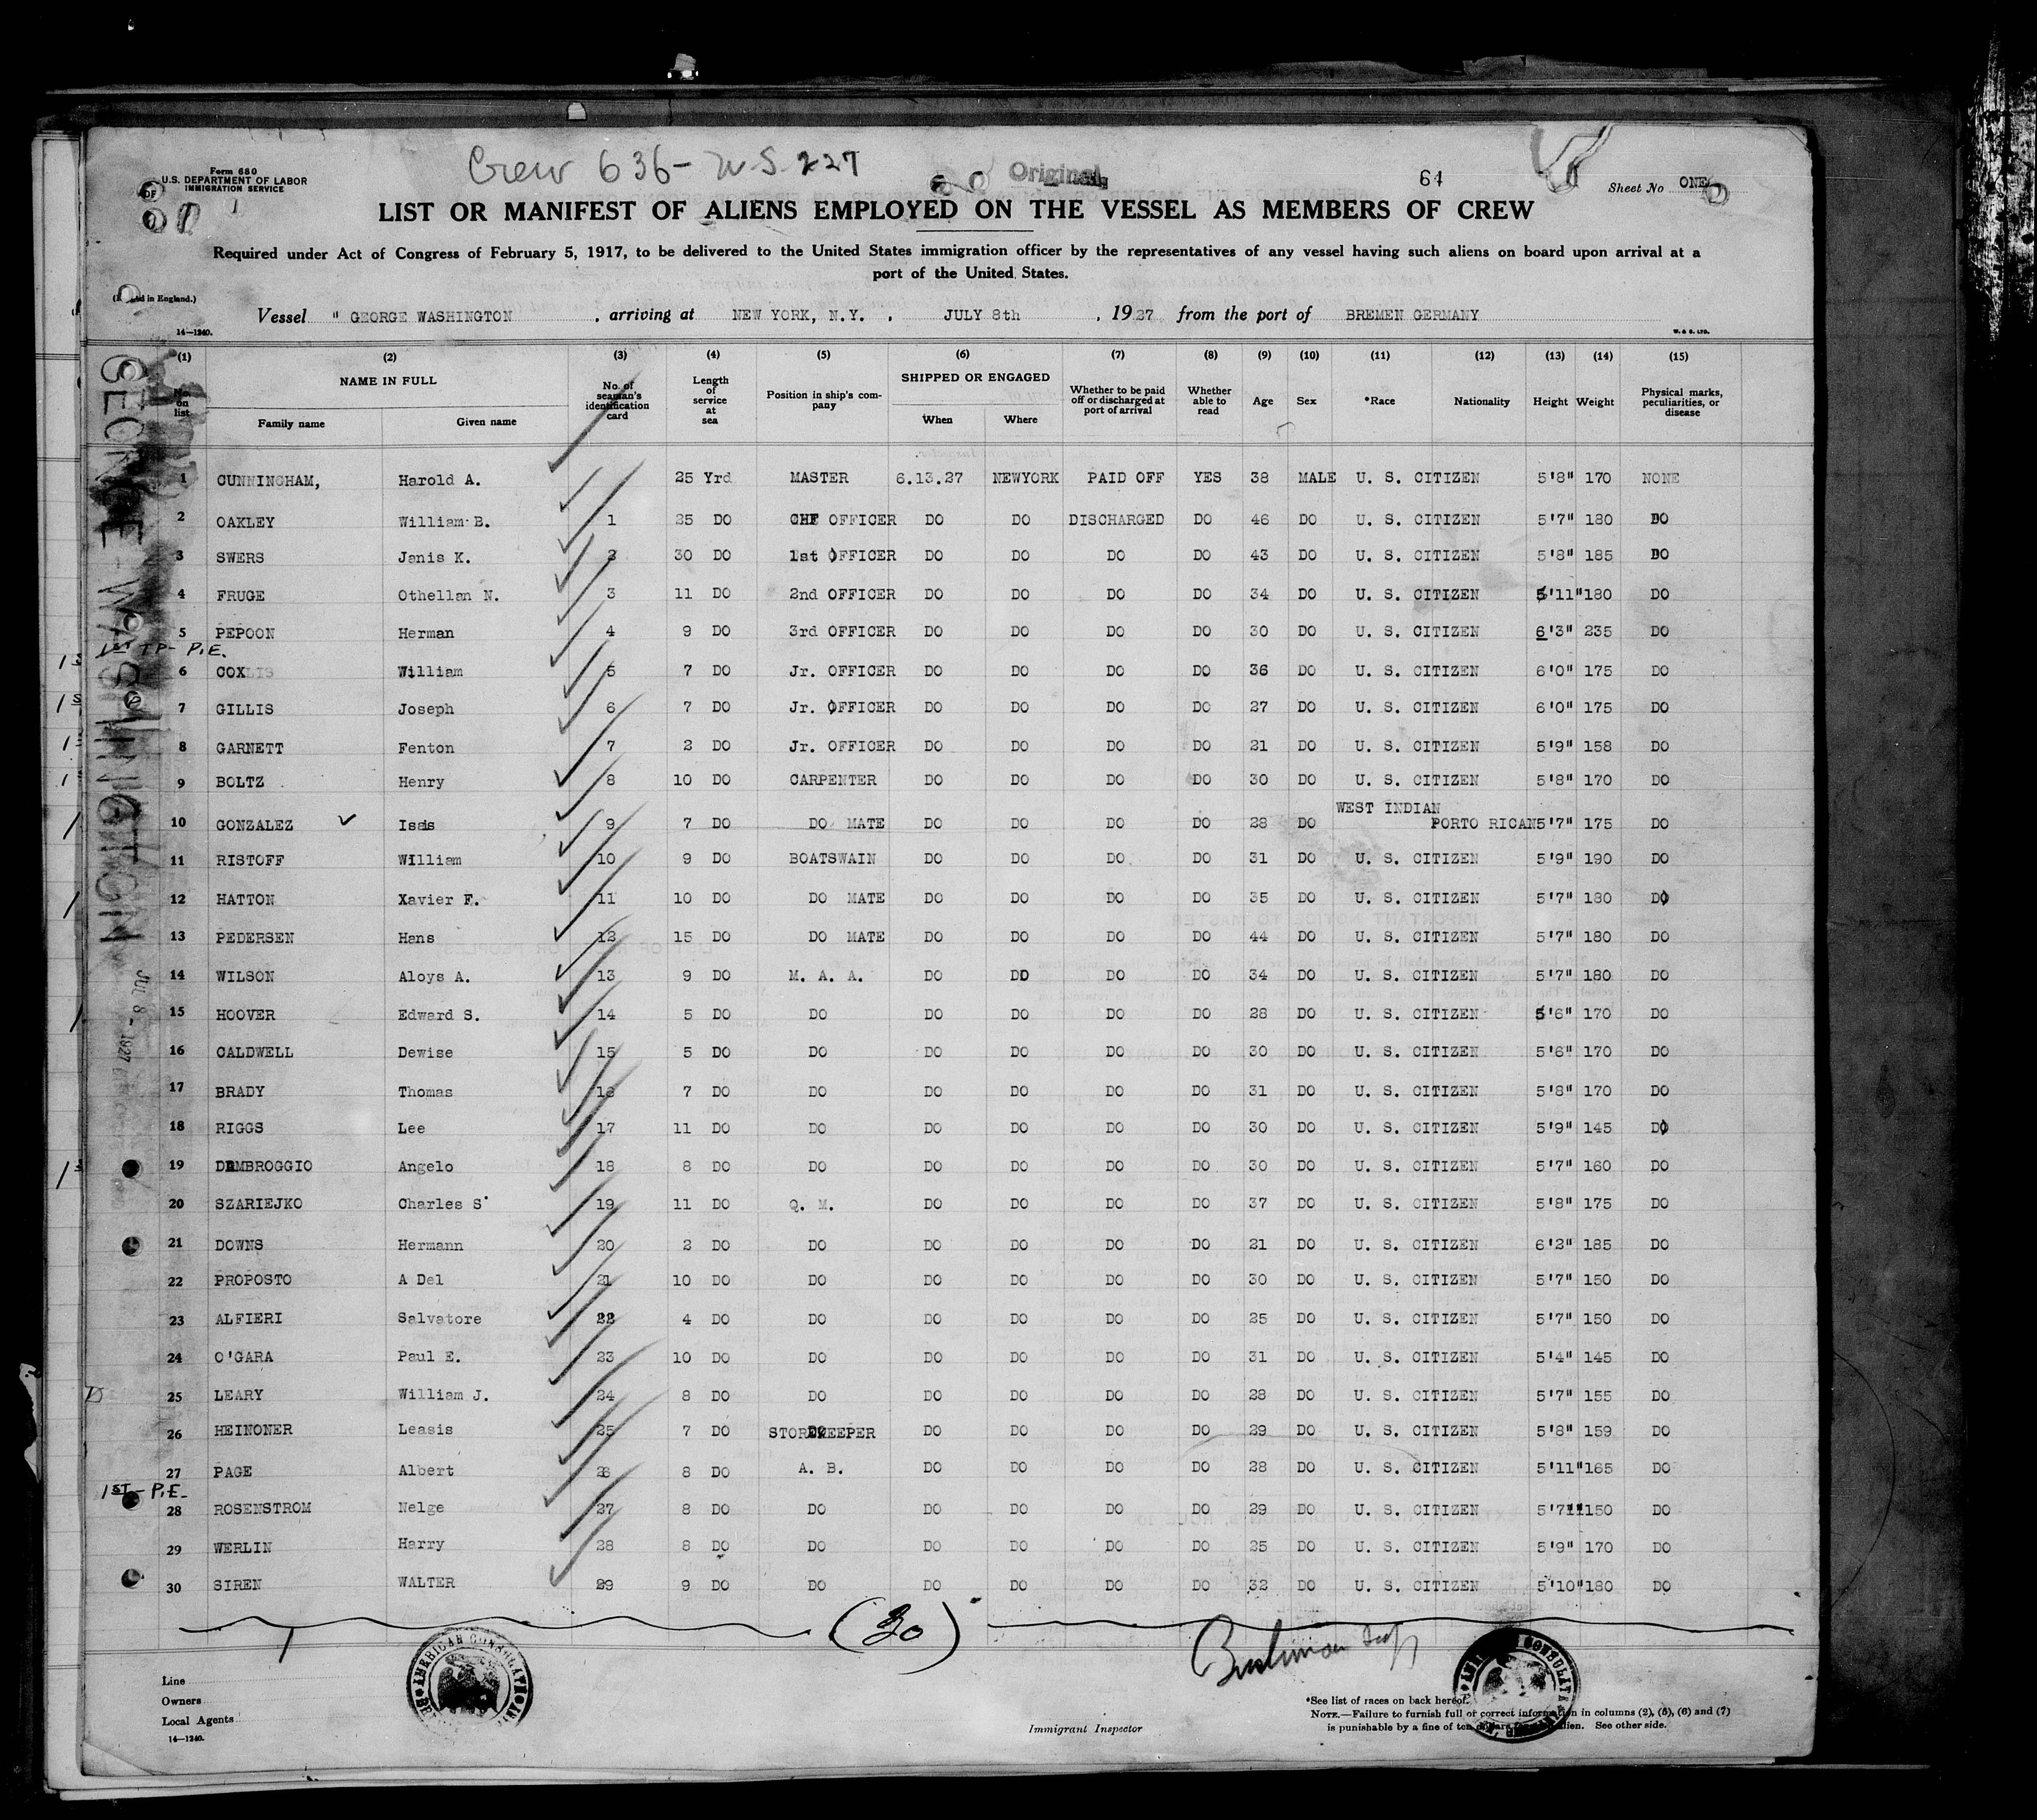 Crew 636 - W.S. 227
Form 680
U.S. DEPARTMENT OF LABOR
IMMIGRATION SERVICE
Original
64
Sheet No ONE
LIST OR MANIFEST OF ALIENS EMPLOYED ON THE VESSEL AS MEMBERS OF CREW
Required under Act of Congress of February 5, 1917, to be delivered to the United States immigration officer by the representatives of any vessel having such aliens on board upon arrival at a
port of the United States.
in England.)
Vessel " GEORGE WASHINGTON , arriving at NEW YORK, N.Y. , JULY 8th , 1927 from the port of BREMEN GERMANY
14—1240.
W. & S. LTD.
GEORGE WASHINGTON
JUL 8 - 1927
(1) (2) (3) (4) (5) (6) (7) (8) (9) (10) (11) (12) (13) (14) (15)
No. on list NAME IN FULL Family name Given name No. of seaman's identification card Length of service at sea Position in ship's company SHIPPED OR ENGAGED When Where Whether to be paid off or discharged at port of arrival Whether able to read Age Sex *Race Nationality Height Weight Physical marks, peculiarities, or disease
1 CUNNINGHAM, Harold A. 25 Yrd MASTER 6.13.27 NEWYORK PAID OFF YES 38 MALE U. S. CITIZEN 5'8" 170 NONE
2 OAKLEY William B. 1 25 DO CHF OFFICER DO DO DISCHARGED DO 46 DO U. S. CITIZEN 5'7" 180 DO
3 SWERS Janis K. 2 30 DO 1st OFFICER DO DO DO DO 43 DO U. S. CITIZEN 5'8" 185 DO
4 FRUGE Othellan N. 3 11 DO 2nd OFFICER DO DO DO DO 34 DO U. S. CITIZEN 5'11" 180 DO
5 PEPOON Herman 4 9 DO 3rd OFFICER DO DO DO DO 30 DO U. S. CITIZEN 6'3" 235 DO
1ST TP- P.E.
6 COX William 5 7 DO Jr. OFFICER DO DO DO DO 36 DO U. S. CITIZEN 6'0" 175 DO
7 GILLIS Joseph 6 7 DO Jr. OFFICER DO DO DO DO 27 DO U. S. CITIZEN 6'0" 175 DO
8 GARNETT Fenton 7 2 DO Jr. OFFICER DO DO DO DO 21 DO U. S. CITIZEN 5'9" 158 DO
9 BOLTZ Henry 8 10 DO CARPENTER DO DO DO DO 30 DO U. S. CITIZEN 5'8" 170 DO
10 GONZALEZ 9 7 DO DO MATE DO DO DO DO 28 DO WEST INDIAN PORTO RICAN 5'7" 175 DO
11 RISTOFF WIlliam 10 9 DO BOATSWAIN DO DO DO DO 31 DO U. S. CITIZEN 5'9" 190 DO
12 HATTON Xavier F. 11 10 DO DO MATE DO DO DO DO 35 DO U. S. CITIZEN 5'7" 180 DO
13 PEDERSEN Hans 12 15 DO DO MATE DO DO DO DO 44 DO U. S. CITIZEN 5'7" 180 DO
14 WILSON Aloys A. 13 9 DO M. A. A. DO DO DO DO 34 DO U. S. CITIZEN 5'7" 180 DO
15 HOOVER Edward S. 14 5 DO DO DO DO DO DO 28 DO U. S. CITIZEN 5'6" 170 DO
16 CALDWELL Dewise 15 5 DO DO DO DO DO DO 30 DO U. S. CITIZEN 5'6" 170 DO
17 BRADY Thomas 16 7 DO DO DO DO DO DO 31 DO U. S. CITIZEN 5'8" 170 DO
18 RIGGS Lee 17 11 DO DO DO DO DO DO 30 DO U. S. CITIZEN 5'9" 145 DO
19 DAMBROGGIO Angelo 18 8 DO DO DO DO DO DO 30 DO U. S. CITIZEN 5'7" 160 DO
20 SZARIEJKO Charles S 19 11 DO Q. M. DO DO DO DO 37 DO U. S. CITIZEN 5'8" 175 DO
21 DOWNS Hermann 20 2 DO DO DO DO DO DO 21 DO U. S. CITIZEN 6'2" 185 DO
22 PROPOSTO A Del 21 10 DO DO DO DO DO DO 30 DO U. S. CITIZEN 5'7" 150 DO
23 ALFIERI Salvatore 22 4 DO DO DO DO DO DO 25 DO U. S. CITIZEN 5'7" 150 DO
24 O'GARA Paul E. 23 10 DO DO DO DO DO DO 31 DO U. S. CITIZEN 5'4" 145 DO
25 LEARY William J. 24 8 DO DO DO DO DO DO 28 DO U. S. CITIZEN 5'7" 155 DO
26 HEINONER Leasis 25 7 DO STOREKEEPER DO DO DO DO 29 DO U. S. CITIZEN 5'8" 159 DO
27 PAGE Albert 26 8 DO A. B. DO DO DO DO 28 DO U. S. CITIZEN 5'11" 165 DO
1ST - P.E.
28 ROSENSTROM Nelge 27 8 DO DO DO DO DO DO 29 DO U. S. CITIZEN 5'7" 150 DO
29 WERLIN Harry 28 8 DO DO DO DO DO DO 25 DO U. S. CITIZEN 5'9" 170 DO
30 SIREN WALTER 29 9 DO DO DO DO DO DO 32 DO U. S. CITIZEN 5'10" 180 DO
(30)
AMERICAN CONSULATE
Line
Owners
Local Agents
14—1240.
Immigrant Inspector
*See list of races on back hereof.
NOTE.—Failure to furnish full or correct information in columns (2), (5), (6) and (7)
is punishable by a fine of ten dollars alien. See other side.